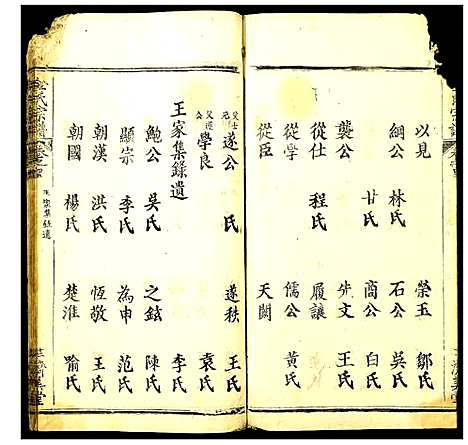 以見 榮玉 鄒氏
綱公 林氏 石公 吳氏
甘氏 商公 白氏
龔公 先文 王氏
從仕 程氏 履讓
從學 儒公 黃氏
從臣 天闕
遂公 氏 遂秩 王氏
學良 袁氏
王家集錄遺 李氏
鮑公 吳氏 之鉉 陳氏
顯宗 李氏 為申 范氏
朝漢 洪氏 恆敬 王氏
朝國 楊氏 楚淮 喻氏
氏宗譜
王家集錄遺